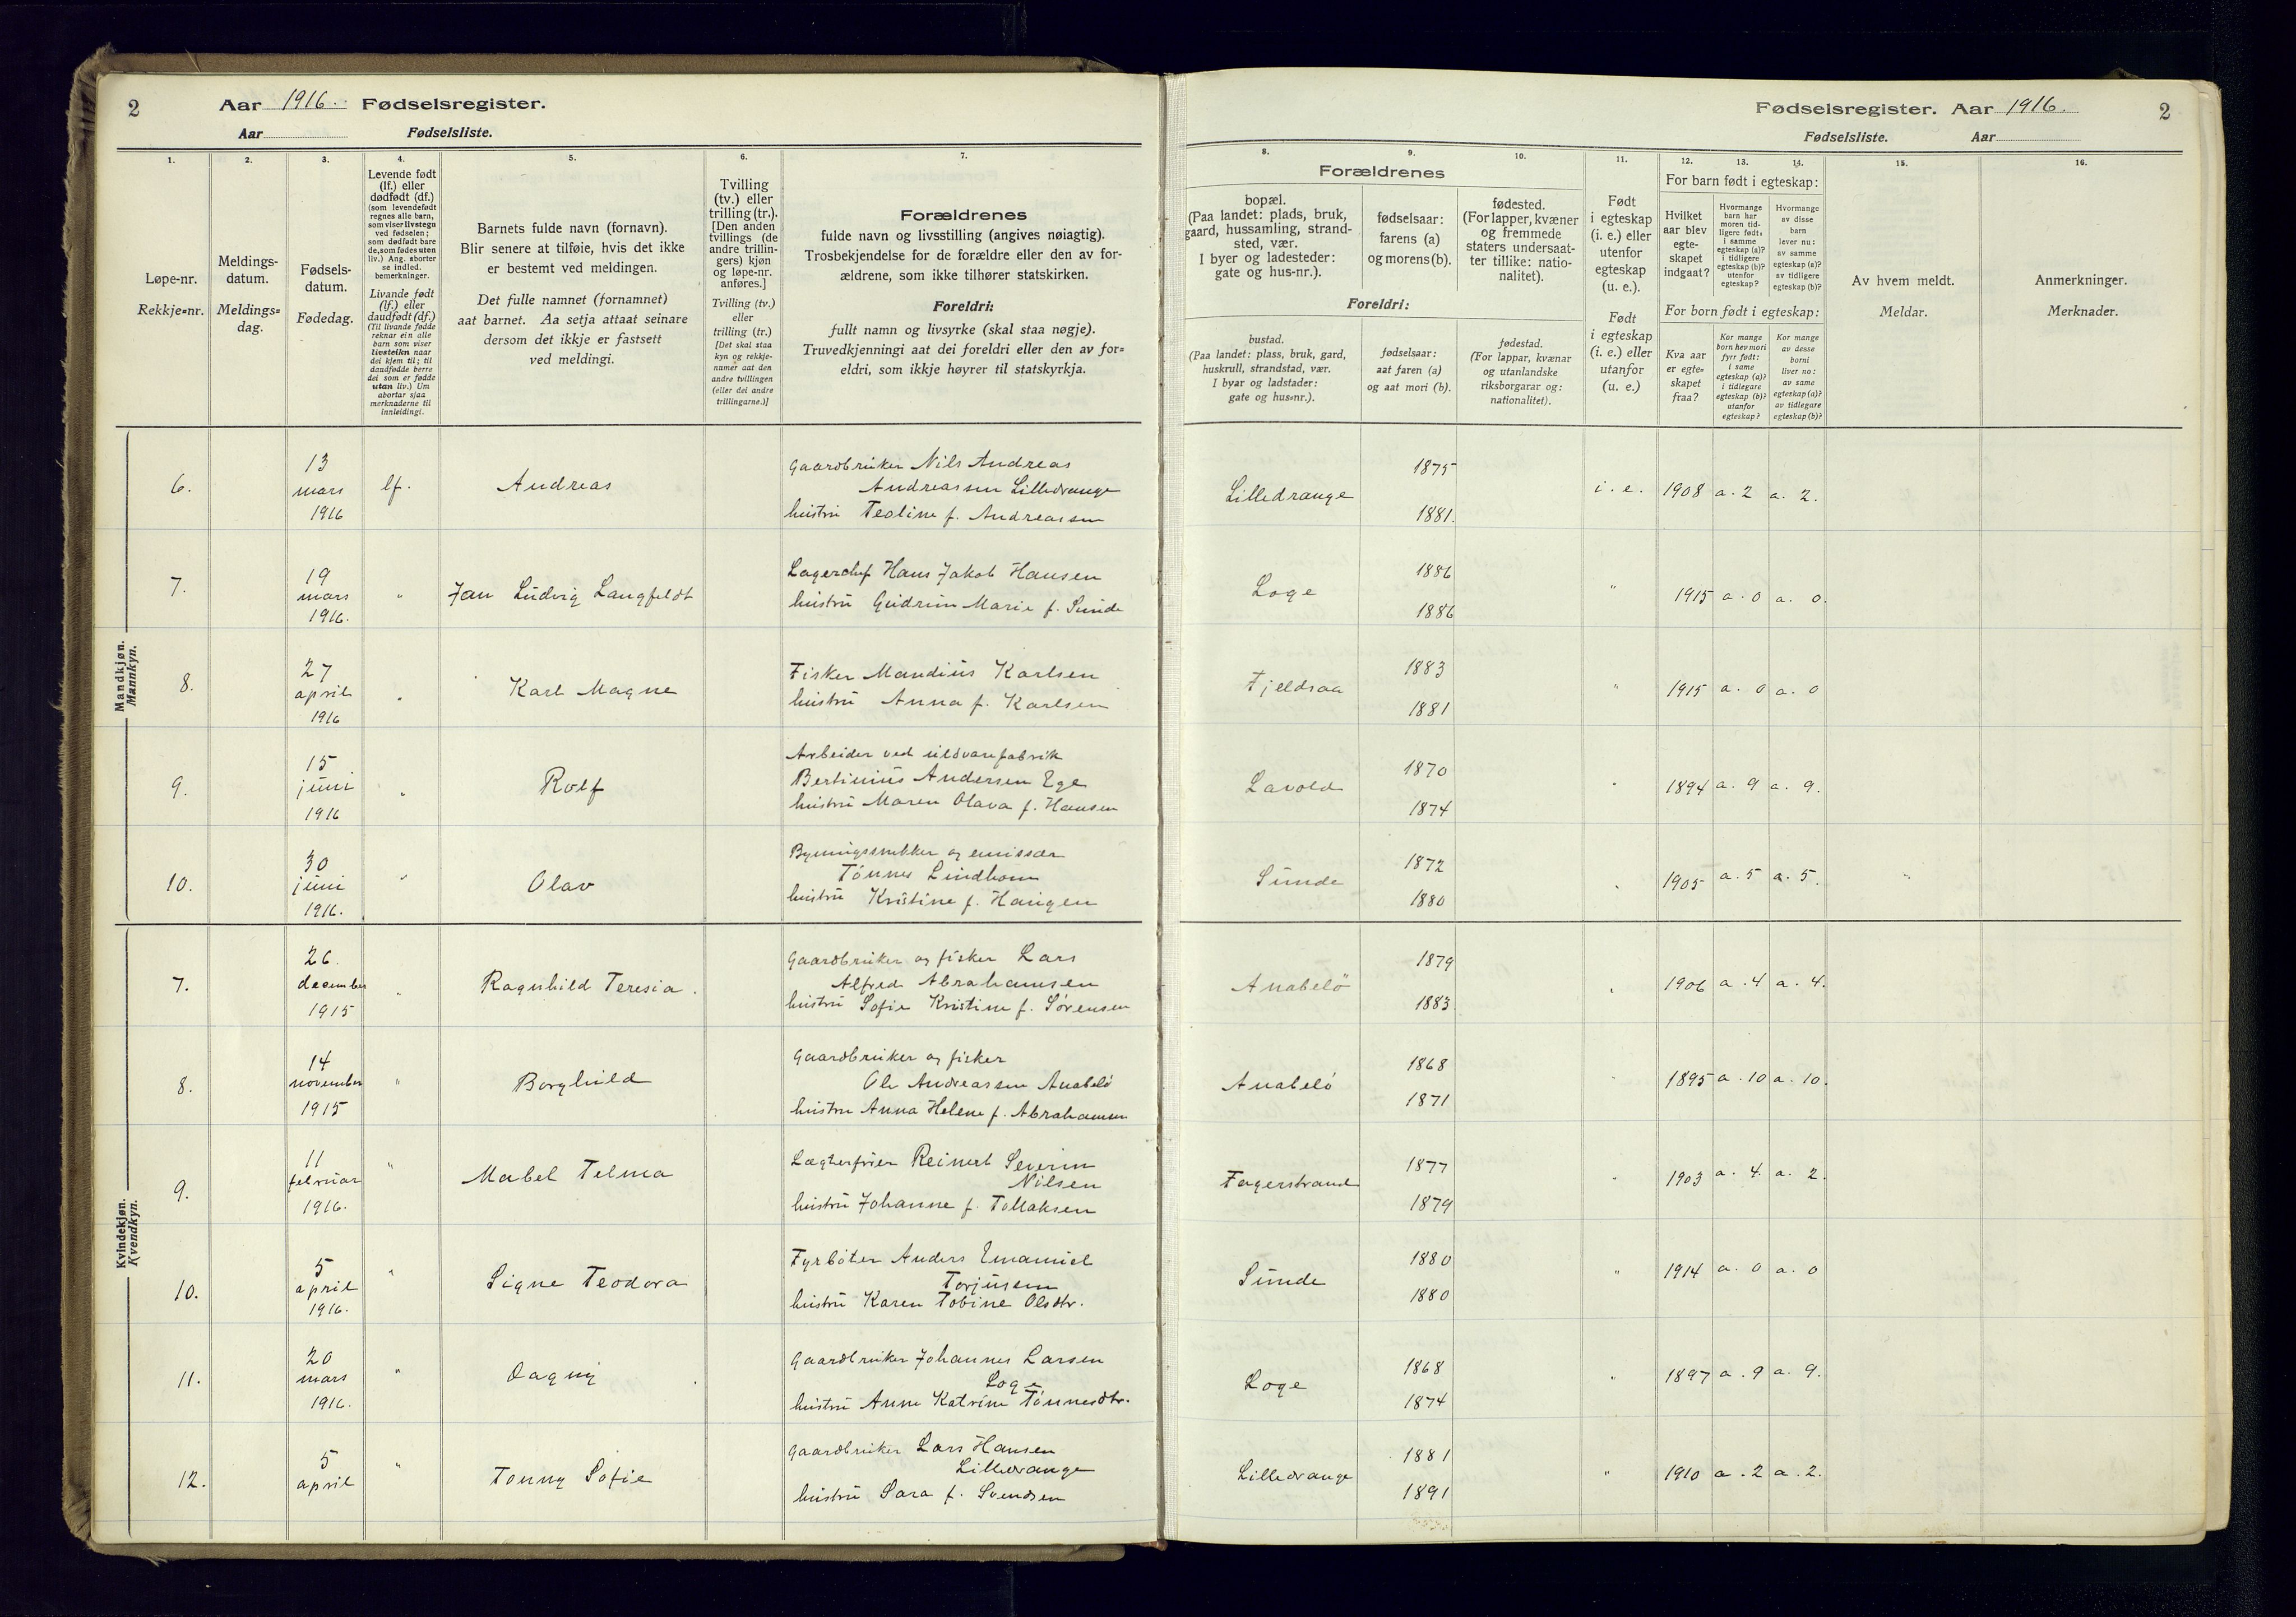 2 Aar 1916. Fødselsregister.
Aar Fødselsliste.
Fødselsregister. Aar 1916. 2
Fødselsliste. Aar
1. 2. 3. 4. 5. 6. 7.
Løpe-nr.
Rekkje-nr.
Meldings-
datum.
Meldings-
dag.
Fødsels-
datum.
Fødedag.
Levende født
(lf.) eller
dødfødt (df.)
(som levendefødt
regnes alle barn,
som viser livstegn
ved fødselen;
som dødfødt bare
de, som fødes uten
liv.) Ang. aborter
se indled.
bemerkninger.
Livande født
(lf.) eller
daudfødt (df.)
(Til livande fødde
reknar ein alle
barn som viser
livsteikn naar
dei kjem til; til
daudfødde berre
dei som er fødde
utan liv.) Um
abortar sjaa
merknaderne til
innleidingi.
Barnets fulde navn (fornavn).
Blir senere at tilføie, hvis det ikke
er bestemt ved meldingen.
Det fulle namnet (fornamnet)
aat barnet. Aa setja attaat seinare
dersom det ikkje er fastsett
ved meldingi.
Tvilling
(tv.) eller
trilling (tr.).
[Den anden
tvillings (de
andre trillin-
gers) kjøn
og løpe-nr.
anføres.]
Tvilling (tv.)
eller
trilling (tr.)
[Det skal staa
kyn og rekkje-
numer aat den
andre tvillingen
(eller dei andre
trillingarne.)]
Forældrenes
fulde navn og livsstilling (angives nøiagtig).
Trosbekjendelse for de forældre eller den av for-
ældrene, som ikke tilhører statskirken.
Foreldri:
fullt namn og livsyrke (skal staa nøgje).
Truvedkjenningi aat dei foreldri eller den av for-
eldri, som ikkje høyrer til statskyrkja.
8. 9. 10. 11. 12. 13. 14. 15. 16.
Forældrenes
bopæl.
(Paa landet: plads, bruk,
gaard, hussamling, strand-
sted, vær.
I byer og ladesteder:
gate og hus-nr.).
fødselsaar:
farens (a)
og morens (b).
fødested.
(For lapper, kvæner
og fremmede
staters undersaat-
ter tillike: natio-
nalitet).
Foreldri:
bustad.
(Paa landet: plass, bruk, gard,
huskrull, strandstad, vær.
I byar og ladstader:
gate og hus-nr.).
fødselsaar:
aat faren (a)
og aat mori (b).
fødestad.
(For lappar, kvænar
og utanlandske
riksborgarar og:
nationalitet).
Født
i egteskap
(i. e.) eller
utenfor
egteskap
(u. e.).
Født
i egteskap
(i. e.) eller
utanfor
(u. e.)
For barn født i egteskap:
Hvilket
aar blev
egte-
skapet
indgaat?
Hvormange
barn har
moren tid-
ligere født:
i samme
egteskap (a)?
i tidligere
egteskap (b)?
utenfor
egteskap?
Hvormange
av disse
barn
lever nu:
av samme
egteskap (a)?
av tidligere
egteskap (b)?
For born født i egteskap:
Kva aar
er egte-
skapet
fraa?
Kor mange
born hev mori
fyrr født:
i same
egteskap (a)?
i tidlegare
egteskap (b)?
utanfor
egteskap?
Kor mange
av desse
borni
liver no:
av same
egteskap (a)?
av tidlegare
egteskap (b)?
Av hvem meldt.
Meldar.
Anmerkninger.
Merknader.
Mandkjøn.
Mannkyn.
6. 13 mars 1916 lf. Andreas
Gaardbruker Nils Andreas
Andreassen Lilledrange
hustru Teoline f. Andreassen
Lilledrange 1875 1881. i. e. 1908 a. 2 a. 2.
7. 19 mars 1916. " Jan Ludvig Langfeldt
Lagerchef Hans Jakob Hansen
hustru Gudrun Marie f. Sunde
Loge 1886 1886 " 1915 a. 0 a. 0.
8. 27 april 1916 " Karl Magne
Fisker Mandius Karlsen
hustru Anna f. Karlsen
Fjeldsaa 1883 1881 " 1915 a. 0 a. 0
9. 15 juni 1916 " Rolf
Arbeider ved uldvarefabrik
Bertinius Andersen Ege
hustru Maren Olava f. Hansen
Lavold 1870 1874 " 1894 a. 9 a. 9.
10. 30 juni 1916. " Olav
Bygningssnekker og emissær
Tönnes Lindhom
hustru Kristine f. Haugen
Sunde 1872 1880 " 1905 a. 5 a. 5. "
Kvindekjøn.
Kvendkyn.
7. 26. december 1915 " Ragnhild Teresia.
Gaardbruker og fisker Lars
Alfred Abrahamsen
hustru Sofie Kristine f. Sörensen
Anabelö 1879 1883 " 1906 a. 4 a. 4.
8. 14 november 1915 " Borghild
Gaardbruker og fisker
Ole Andreassen Anabelö
hustru Anna Helene f. Abrahamsen
Anabelö 1868 1871 " 1895 a. 10 a. 10.
9. 11 februar 1916. " Mabel Telma
Lægterfører Reinert Severin
Nilsen
hustru Johanne f. Tollaksen
Fagerstrand 1877 1879 " 1903 a. 4. a. 2.
10. 5 april 1916. " Signe Teodora
Fyrböter Anders Emanuel
Torjusen
hustru Karen Tobine Olsdtr.
Sunde 1880 1880 " 1914 a. 0 a. 0
11. 20 mars 1916. " Dagny
Gaardbruker Johannes Larsen
Loge
hustru Anne Katrine Tönnesdtr.
Loge 1868 1874 " 1897 a. 9 a. 9.
12. 5 april " Tonny Sofie
Gaardbruker Lars Hansen
Lilledrange
hustru Sara f. Svendsen
Lilledrange 1881 1891 " 1910 a. 2 a. 2.